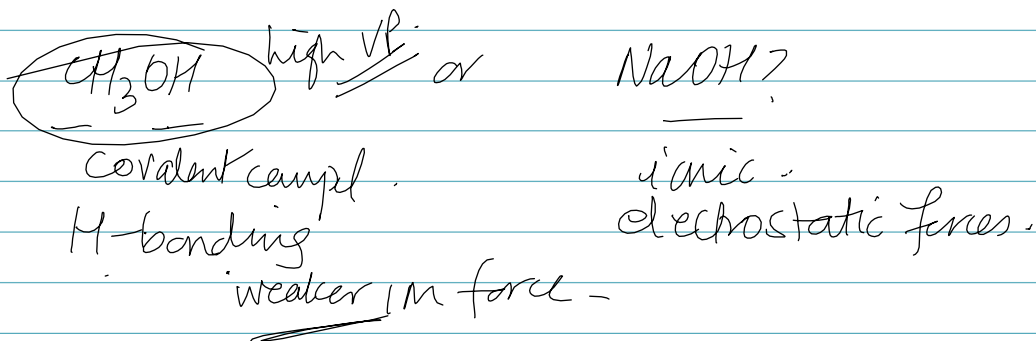 CH3OH high VP. or NaOH?
covalent compd. ionic.
H-bonding electrostatic forces.
weaker IM force -